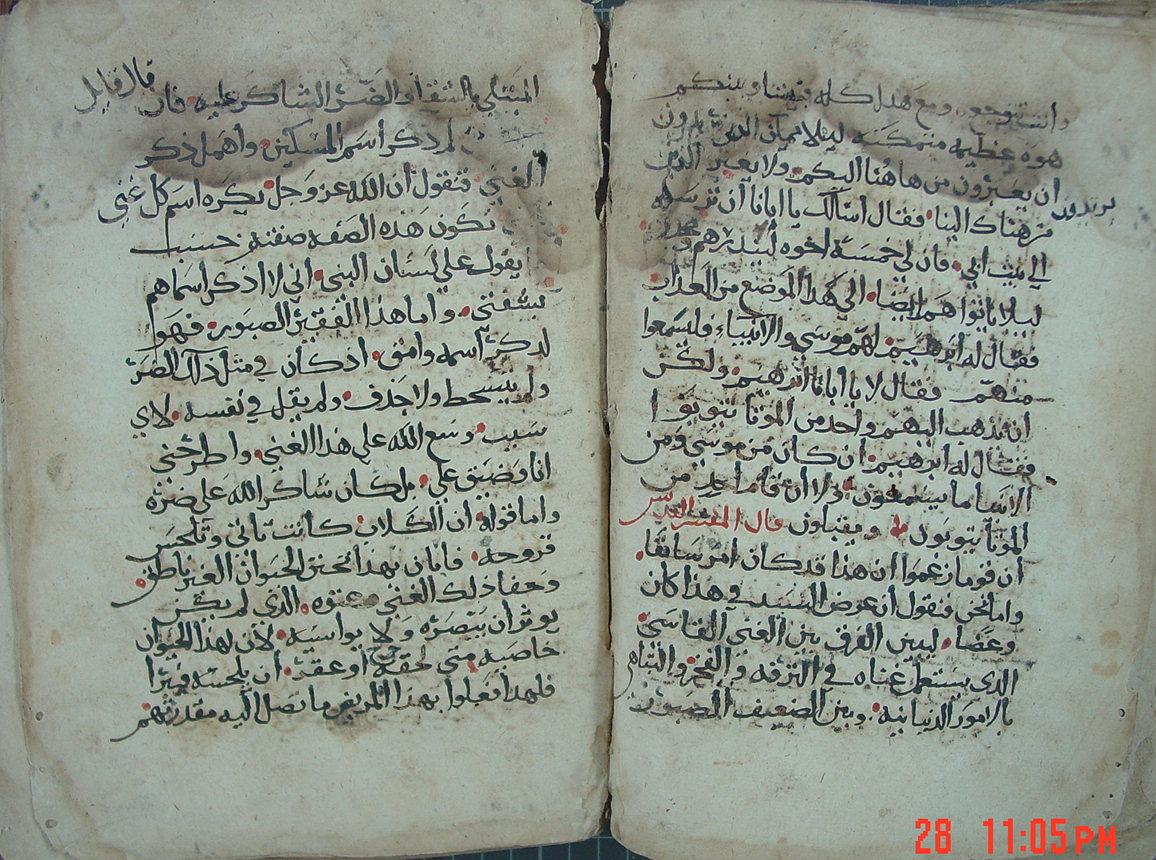 وانت تتوجع. ومع هدا كله فبيننا وبينكم
هوه عظيمه متمكنه ليلا يمكن الدين يريدون
ان يعبرون من هاهنا اليكم. ولا يعبر الدين
يريدون
من هناك الينا. فقال اسالك يا ابانا ان ترسله
الي بيت ابي. فان لي خمسة اخوه ليندرهم
ليلا ياتوا هم ايضا. الي هدا الموضع من العداب
فقال له ابرهيم. لهم موسي والانبياء فليسمعوا
منهم فقال لا يا ابانا ابرهيم. ولكن
ان يدهب اليهم واحد من الموتا يتوبوا
فقال له ابرهيم. ان كان من موسي ومن
الانبيا ما يسمعون. ولا ان قام احد من
الموتا يتوبون ويقبلون قال المفسر القديس
ان قوما زعموا ان هدا قد كان امر سابقا.
واما نحن فنقول ان غرض السيد في هدا كان
وعضا. ليبين الفرق بين الغني القاسي
الدي يستعمل غناه في الترفه و الفخر والتباهي
بالامور الدنيانيه. وبين الضعيف الصبور
المبتلي بالشقا والضر الشاكر عليه. فان
قال قايل
لم دكر اسم المسكين. واهمل دكر
الغني. فنقول ان الله عز وجل يكره اسم كل غني
تكون هده الصفه صفته. حسب
يقول علي لسان النبي. اني لا ادكر اسماهم
بشفتي. واما هدا الفقير الصبور. فهوا
لدكر اسمه وامق. اد كان في مثل دلك الضر
ولم يسخط ولا جدف. ولم يقل في نفسه. لاي
سبب. وسع الله علي هدا الغني. واطرحني
انا وضيق علي. بل كان شاكر الله علي ضره
واما قوله ان الكلاب كانت تاتي وتلحس
قروحه. فابان بهدا تحنن الحيوان الغير ناطق.
وجفا دلك الغني وعتوه. الدي لم يكن
يوثر ان يبصره ولا يواسيه. لان لهدا الحيوان
خاصيه متي لحقه جرح او عقر. ان يلحسه فيبرا
فلهدا فعلوا بهدا المريض ما تصل اليه مقدرتهم